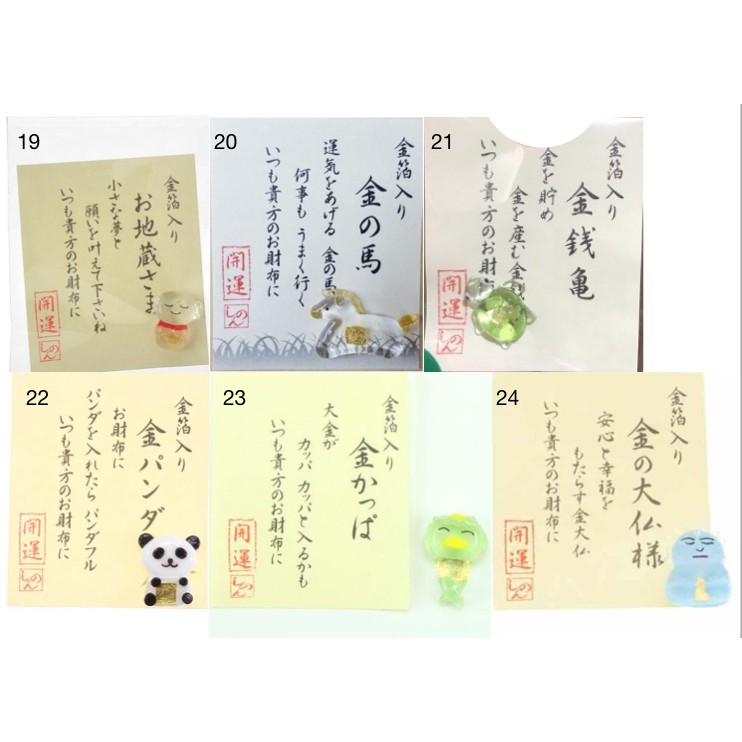 19
金箔入り
お地蔵さま
小さな夢と
願いを叶えて下さいね
いつも貴方のお財布に
開運
しのん
20
金箔入り
金の馬
運気をあげる 金の馬
何事も うまく行く
いつも貴方のお財布に
開運
しのん
21
金箔入り
金銭亀
金を貯め
金を産む金銭
いつも貴方のお財布に
開運
しのん
22
金箔入り
金パンダ
お財布に
パンダを入れたら パンダフル
いつも貴方のお財布に
開運
しのん
23
金箔入り
金かっぱ
大金が
カッパ カッパと入るかも
いつも貴方のお財布に
開運
しのん
24
金箔入り
金の大仏様
安心と幸福を
もたらす金大仏
いつも貴方のお財布に
開運
しのん